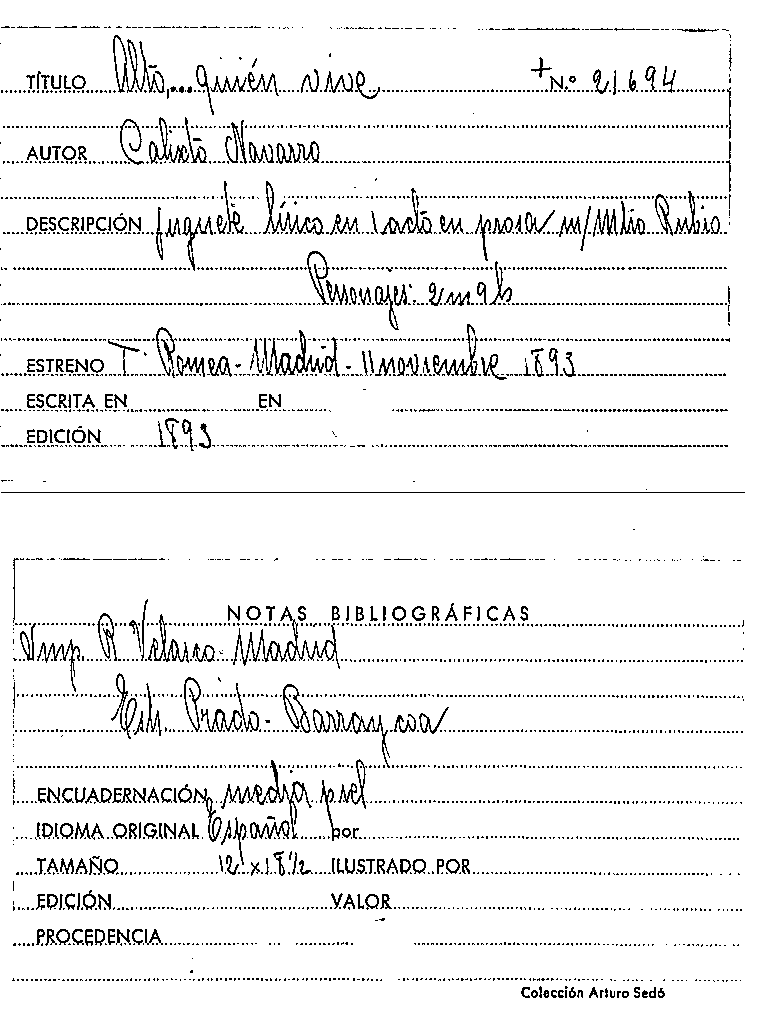 TÍTULO Alto,...quién vive + N.º 21694
AUTOR Calixto Navarro
DESCRIPCIÓN juguete lírico en 1 acto en prosa m/ Mtro Rubio
Personajes: 2m 9h
ESTRENO T. Romea - Madrid - 11 noviembre 1893
ESCRITA EN EN
EDICIÓN 1893
NOTAS BIBLIOGRÁFICAS
Ymp. R Velasco - Madrid
Prado - Barraycoa
ENCUADERNACIÓN media piel
IDIOMA ORIGINAL Español por
TAMAÑO 12 x 18 1/2 ILUSTRADO POR
EDICIÓN VALOR
PROCEDENCIA
Colección Arturo Sedó